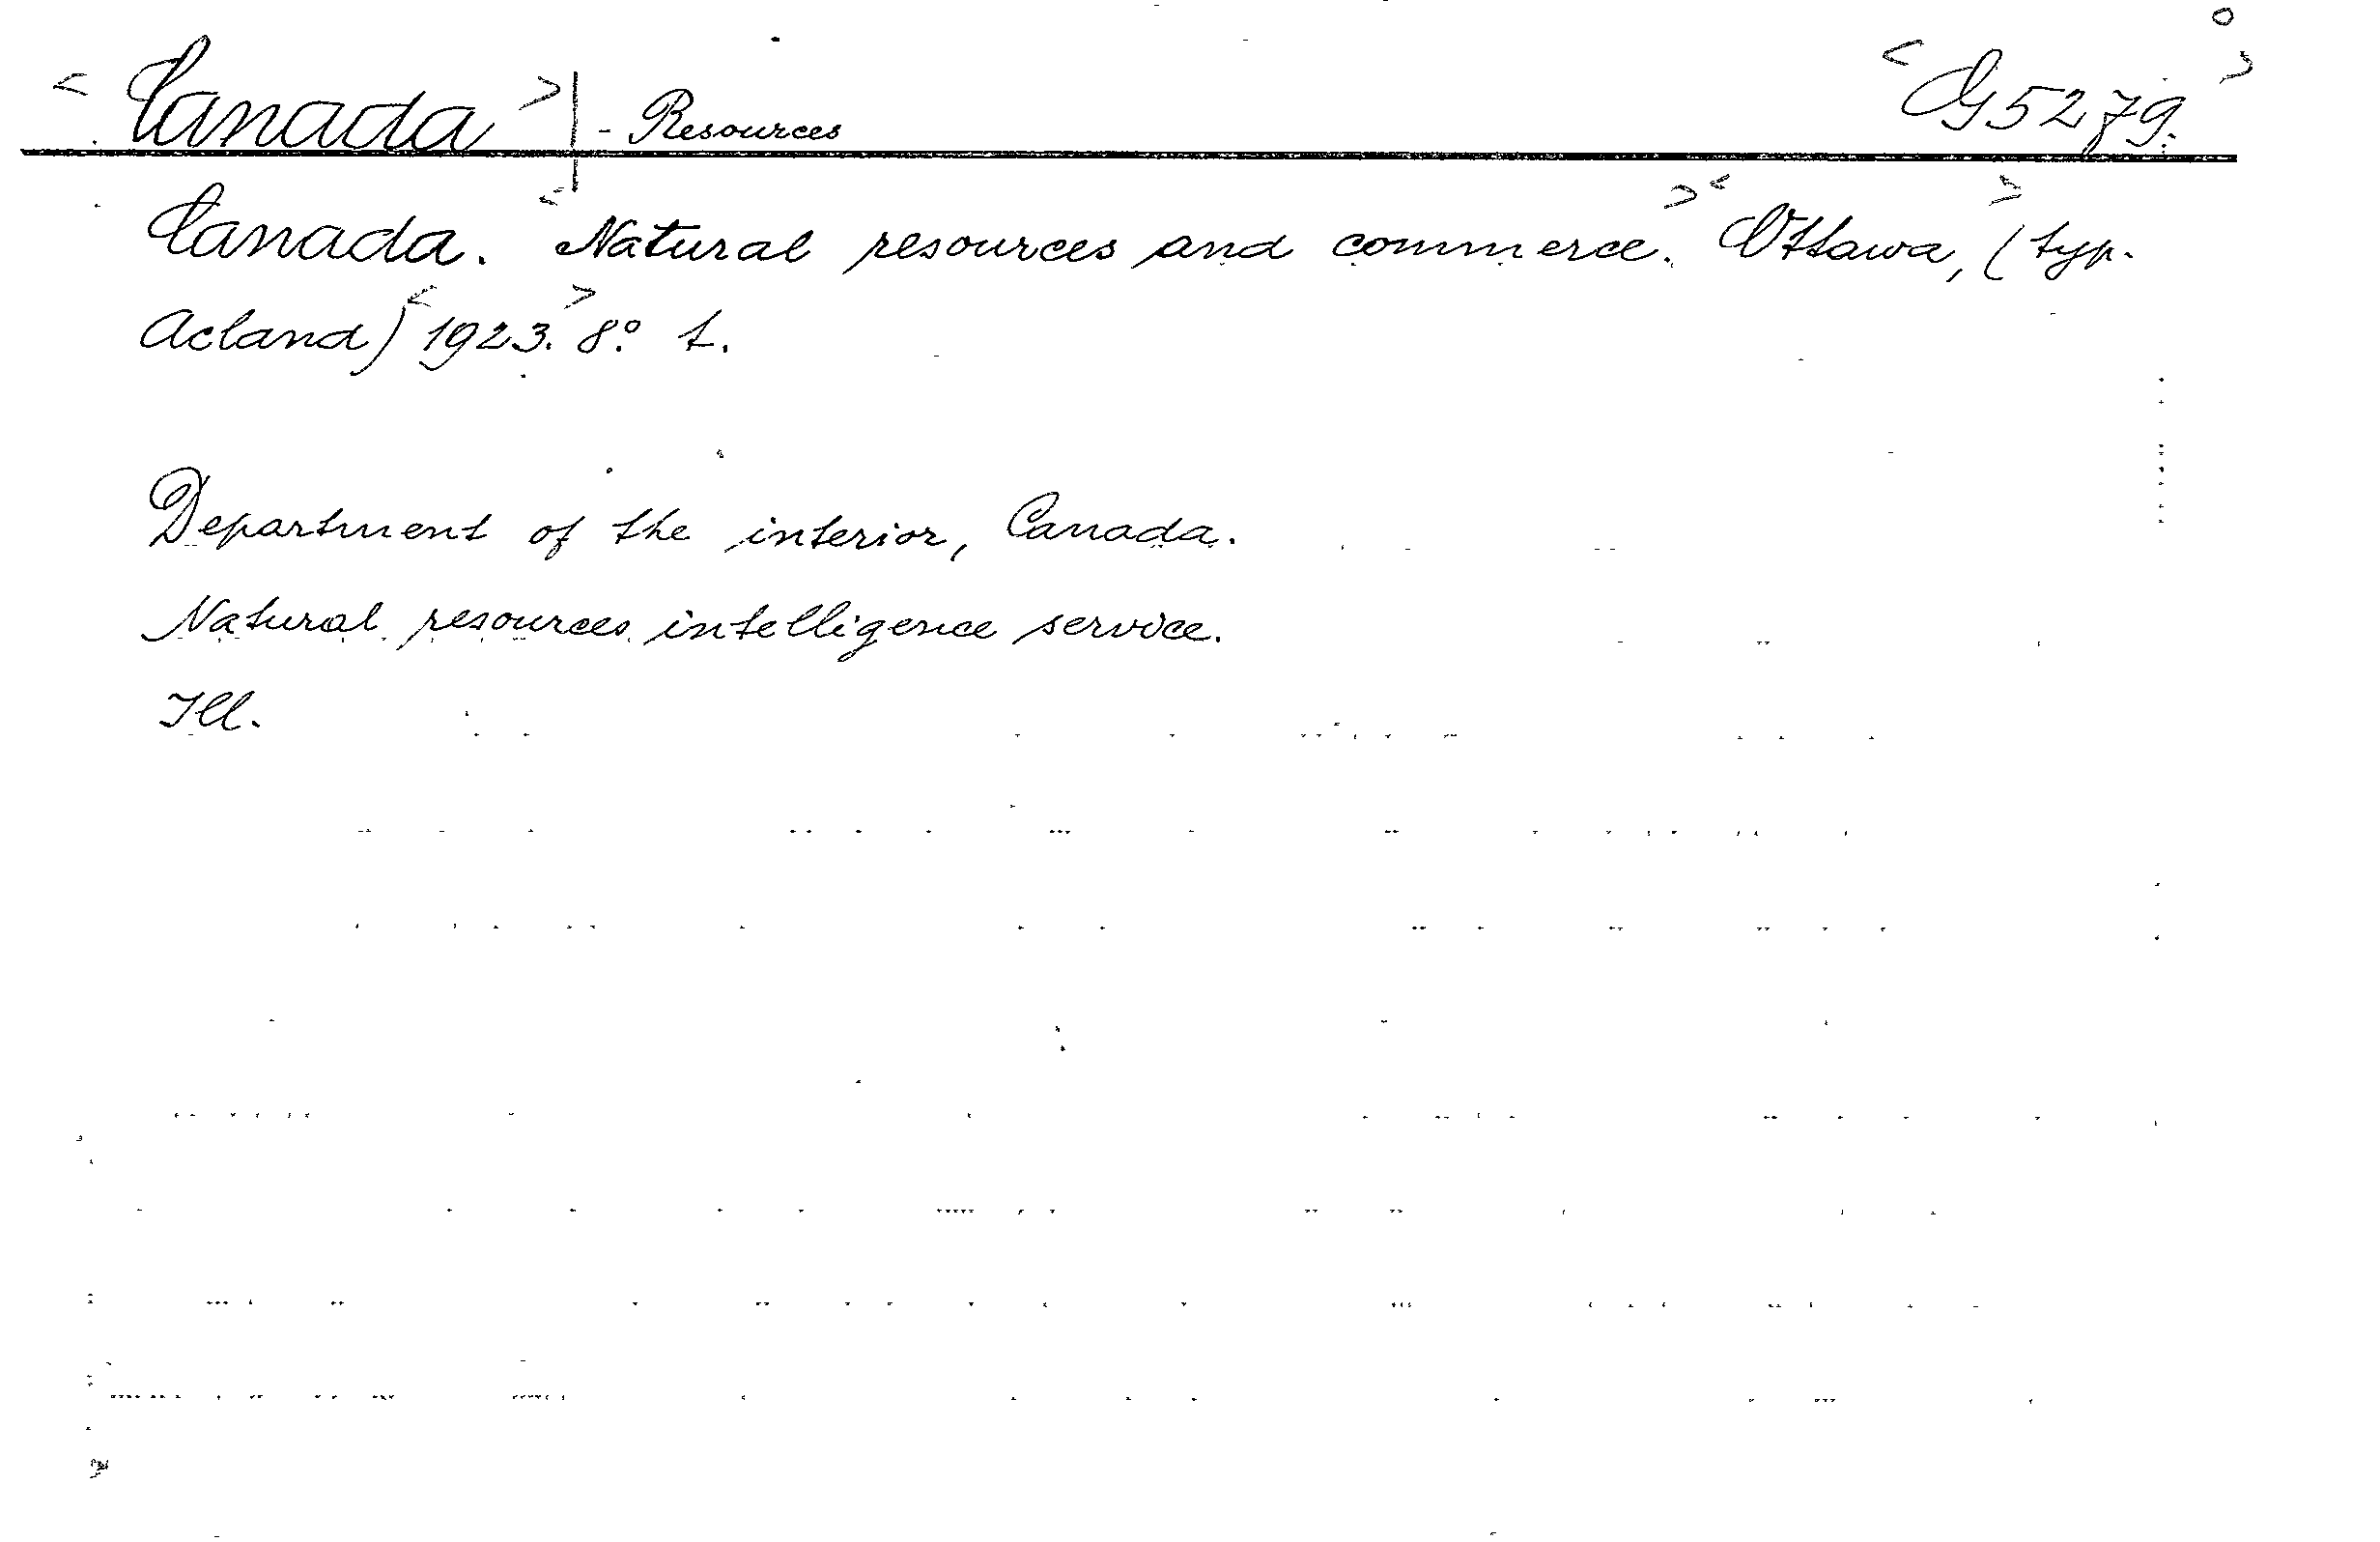 <Canada> - Resources <G5279.>
Canada. <Natural resources and commerce.> <Ottawa,> (typ.
Acland) <1923.> 8º t.
Department of the interior, Canada.
Natural resources intelligence service.
Ill.